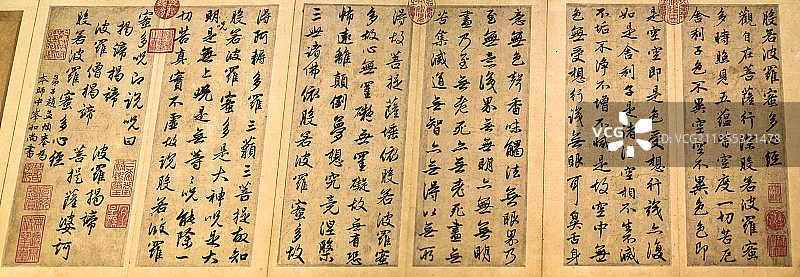 般若波羅蜜多心經
觀自在菩薩行深般若波羅蜜
多時照見五蘊皆空度一切苦厄
舍利子色不異空空不異色色即
是空空即是色受想行識亦復
如是舍利子是諸法空相不生不滅
不垢不淨不增不減是故空中無
色無受想行識無眼耳鼻舌身
意無色聲香味觸法無眼界乃
至無意識界無無明亦無無明
盡乃至無老死亦無老死盡無
苦集滅道無智亦無得以無所
得故菩提薩埵依般若波羅蜜
多故心無罣礙無罣礙故無有恐
怖遠離顛倒夢想究竟涅槃
三世諸佛依般若波羅蜜多故
得阿耨多羅三藐三菩提故知
般若波羅蜜多是大神咒是大
明咒是無上咒是無等等咒能除一
切苦真實不虛故說般若波羅
蜜多咒即說咒曰
揭諦揭諦 波羅揭諦
波羅僧揭諦 菩提薩婆訶
般若波羅蜜多心經
弟子趙孟頫奉為
本師中峯和尚書
VCG